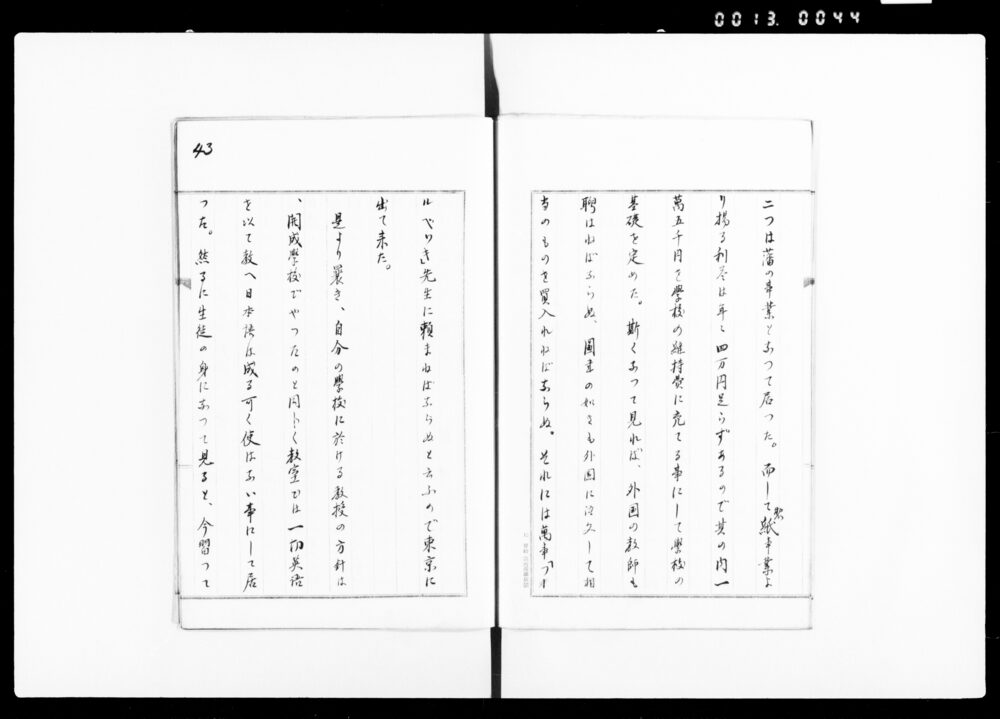 0013.0044
二つは藩の事業となつて居つた。而して紙事業よ
り揚る利益は年々四万円足らずあるので其の内一
萬五千円を學校の維持費に充てる事にして學校の
基礎を定めた。斯くなつて見れば、外国の教師も
聘はねばならぬ、圖書の如きも外国に注文して相
当のものを買入れねばならぬ。それには萬事フ
43
ルベツキ先生に頼まねばならぬと云ふので東京に
出て来た。
是より曩き、自分の學校に於ける教授の方針は
、開成學校でやつたのと同じく教室では一切英語
を以て教へ日本語は成る可く使はない事にして居
つた。然るに生徒の身になつて見ると、今習つて